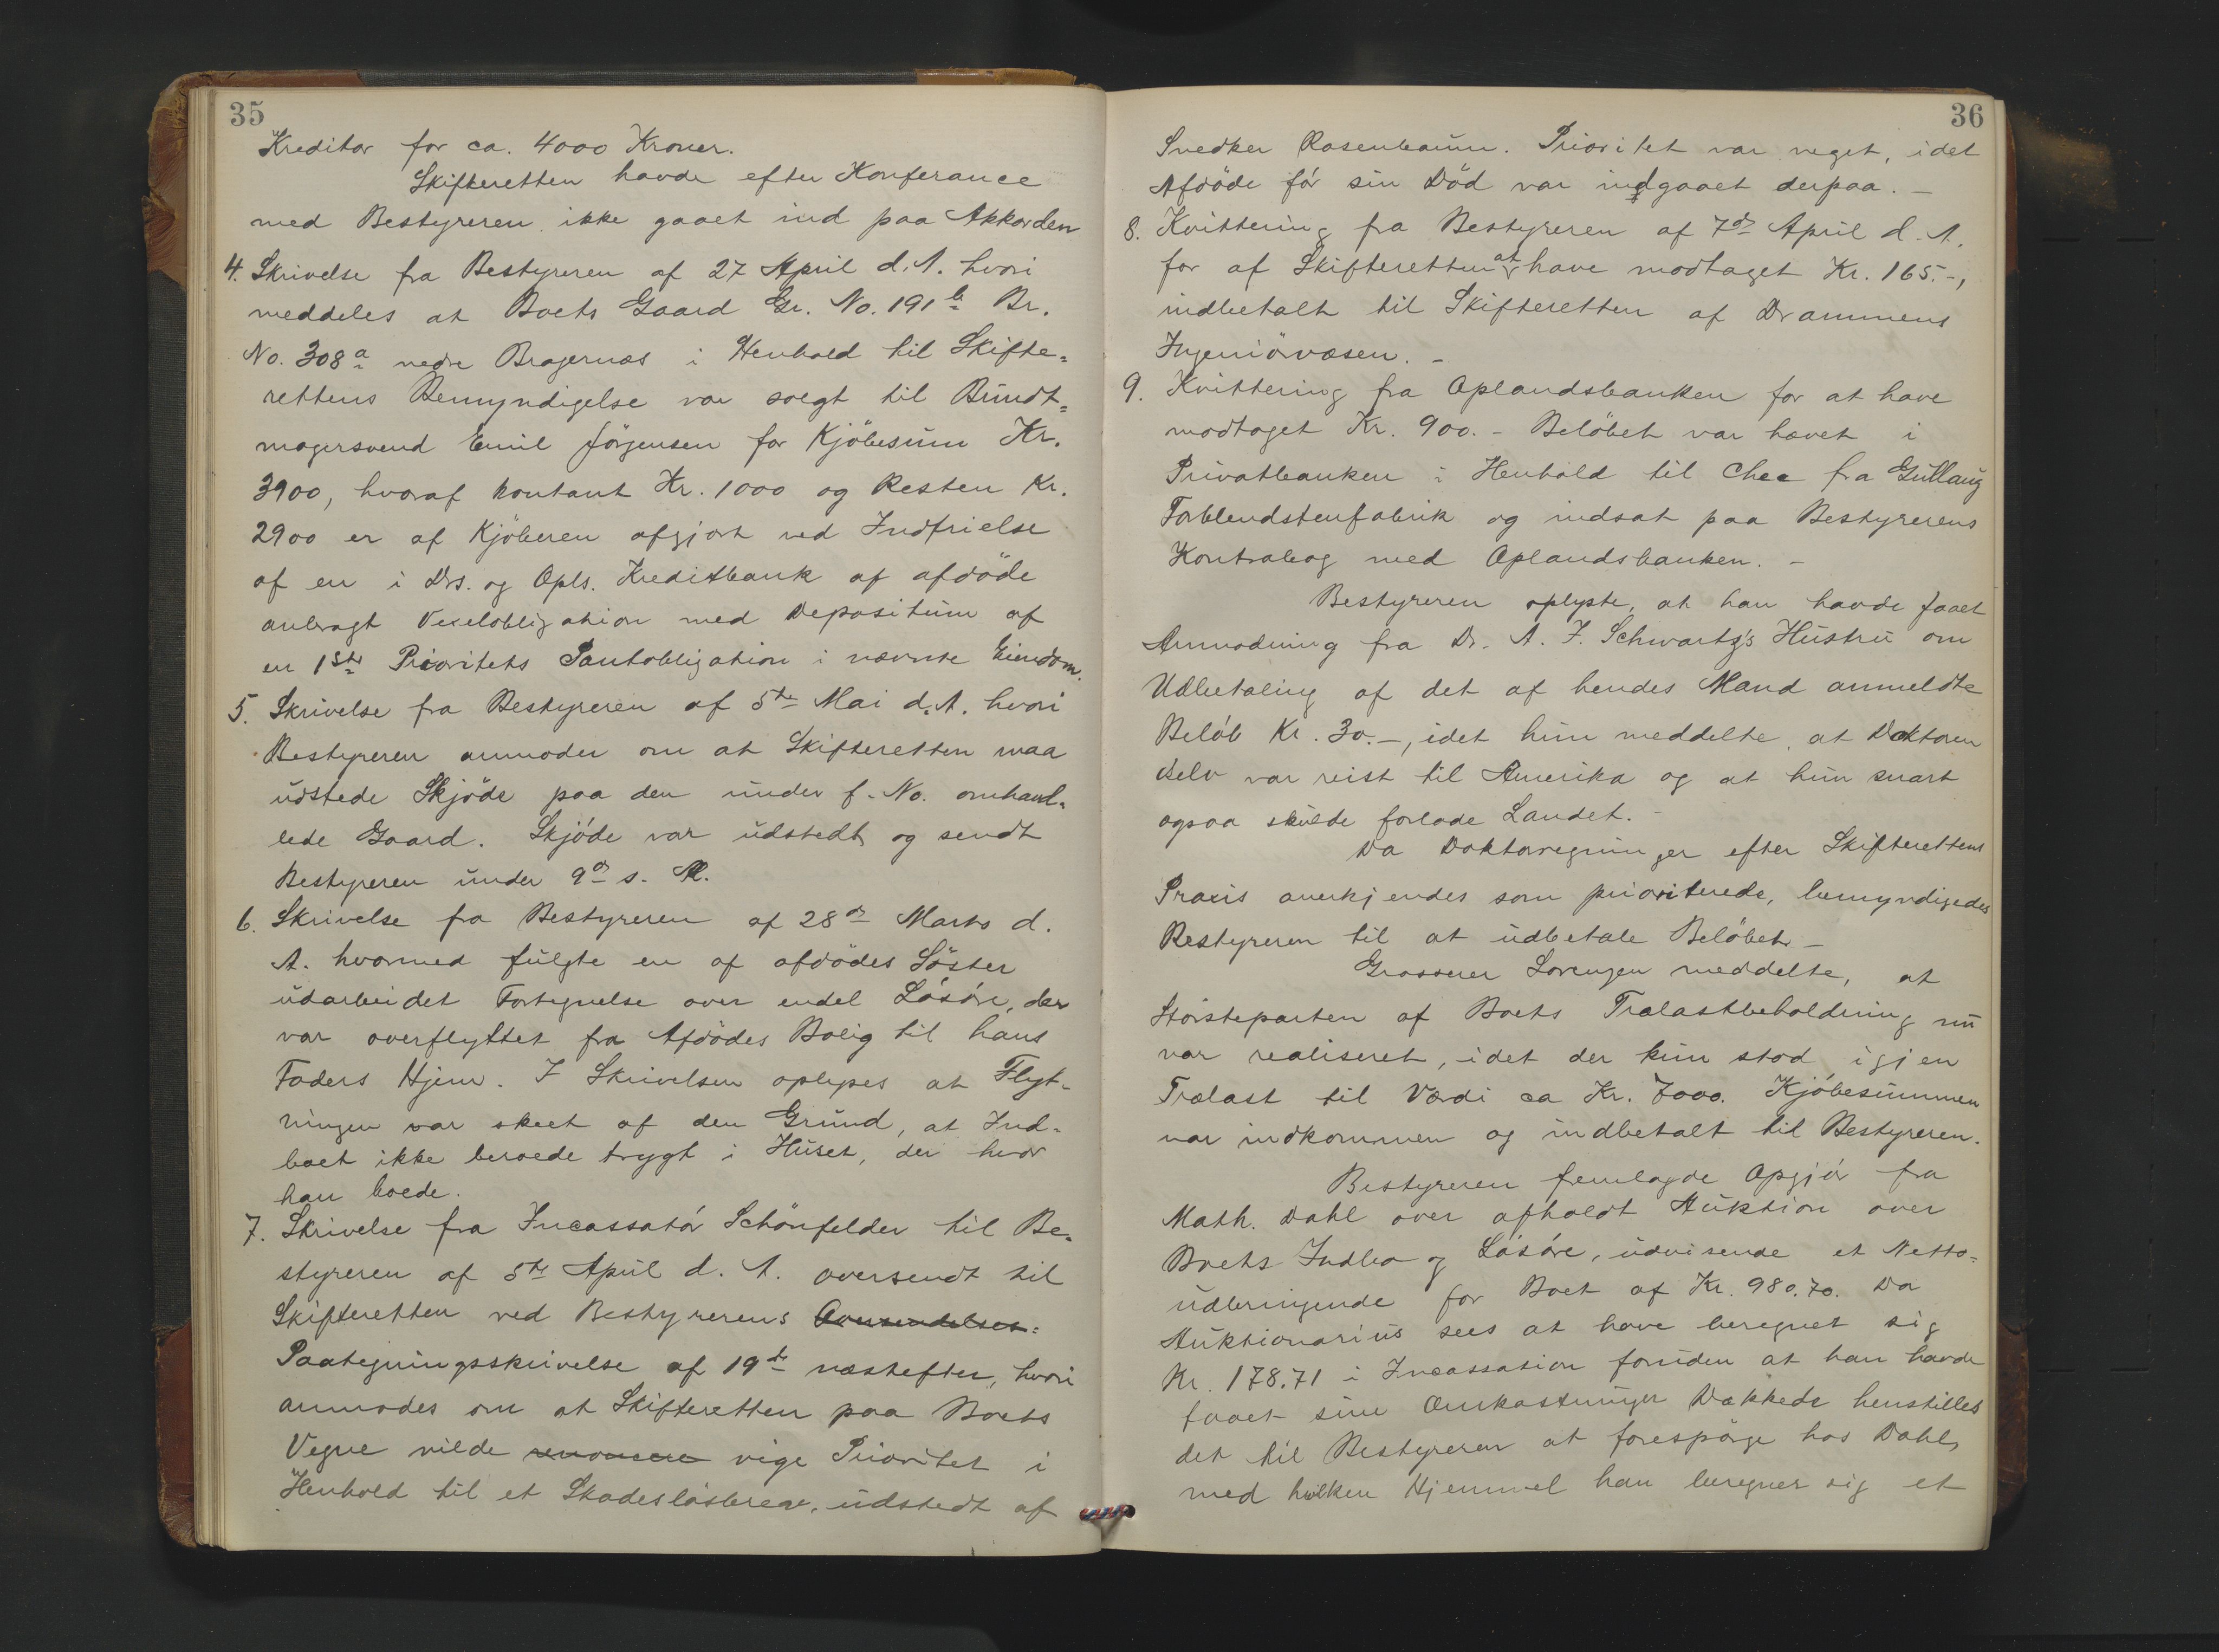 35
Kreditor for ca. 4000 Kroner.
Skifteretten havde efter Konferance
med Bestyreren ikke gaaet ind paa Akkorden
4. Skrivelse fra Bestyreren af 27 April d. A. hvori
meddeles at Boets Gaard Gr. No. 191 b Br.
No. 308 a nedre Bragernæs i Henhold til Skifte=
rettens Bemyndigelse var solgt til Bundt=
magersvend Emil Jörgensen for Kjöbesum Kr.
3900, hvoraf kontant Kr. 1000 og Resten Kr.
2900 er af Kjöberen afgjort ved Indfrielse
af en i Drs. og Opls. Kreditbank af afdöde
anbragt Vexelobligation med Depositum af
en 1ste Prioritets Pantobligation i nævnte Eiendom.
5. Skrivelse fra Bestyreren af 5te Mai d. A. hvori
Bestyreren anmoder om at Skifteretten maa
udstede Skjöde paa den under f. No. omhand=
lede Gaard. Skjöde var udstedt og sendt
Bestyreren under 9de s. M.
6. Skrivelse fra Bestyreren af 28de Marts d.
A. hvormed fulgte en af afdödes Söster
udarbeidet Fortegnelse over endel Lösöre, der
var overflyttet fra Afdödes Bolig til hans
Faders Hjem. I Skrivelsen oplyses at Flyt=
ningen var skeet af den Grund, at Ind=
boet ikke beroede trygt i Huset, der hvor
han boede.
7. Skrivelse fra Incassatór Schönfelder til Be=
styreren af 5te April d. A. oversendt til
Skifteretten ved Bestyrerens Oversendelses=
Paategningsskrivelse af 19de næstefter, hvori
anmodes om at Skifteretten paa Boets
Vegne vilde renoncere vige Prioritet i
Henhold til et Skadeslösbrev, udstedt af
36
Snedker Rosenbaum. Prioritet var veget, idet
Afdöde för sin Död var indgaaet derpaa. –
8. Kvittering fra Bestyreren af 7de April d. A.
for af Skifteretten at have modtaget Kr. 165.-,
indbetalt til Skifteretten af Drammens
Ingeniörvæsen. –
9. Kvittering fra Oplandsbanken for at have
modtaget Kr. 900.- Belöbet var hævet i
Privatbanken i Henhold til Chec fra Gullaug
Forblendstenfabrik og indsat paa Bestyrerens
Kontrabog med Oplandsbanken. –
Bestyreren oplyste, at han havde faaet
Anmodning fra Dr. A. F. Schwartz's Hustru om
Udbetaling af det af hendes Mand anmeldte
Belöb Kr. 30.-, idet hun meddelte, at Doktoren
selv var reist til Amerika og at hun snart
ogsaa skulde forlade Landet. –
Da Doktorregninger efter Skifterettens
Praxis anerkjendes som prioriterede, bemyndigedes
Bestyreren til at udbetale Belöbet –
Grosserer Lorenzen meddelte, at
Störsteparten af Boets Trælastbeholdning nu
var realiseret, idet der kun stod igjen
Trælast til Værdi ca Kr. 7000. Kjöbesummen
var indkommen og indbetalt til Bestyreren.
Bestyreren fremlagde Opgjör fra
Math. Dahl over afholdt Auktion over
Boets Indbo og Lösöre, udvisende et Netto=
udbringende for Boet af Kr. 980.70. Da
Auktionarius sees at have beregnet sig
Kr. 178.71 i Incassation foruden at han havde
faaet sine Omkostninger dækkede henstilles
det til Bestyreren at forespörge hos Dahl,
med hvilken Hjemmel han beregner sig et